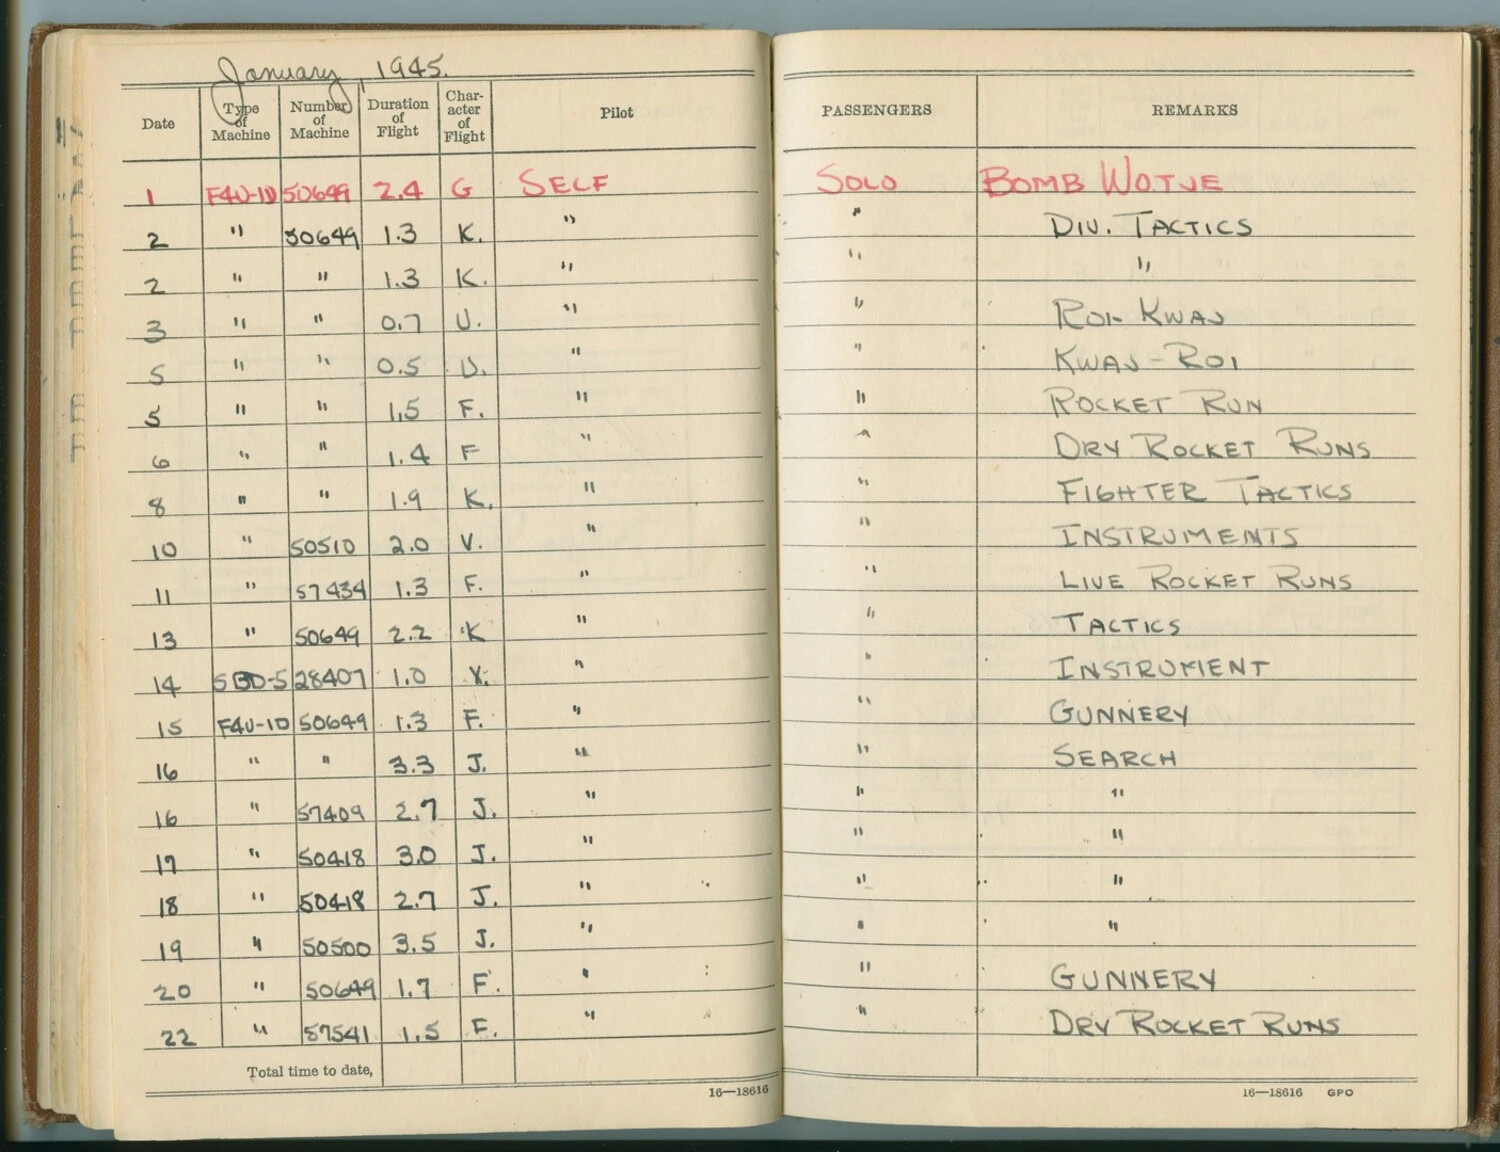 January, 1945.
Date Type of Machine Number of Machine Duration of Flight Character of Flight Pilot PASSENGERS REMARKS
1 F4U-1D 50649 2.4 G SELF SOLO BOMB WOTJE
2 " 50649 1.3 K. " " DIV. TACTICS
2 " " 1.3 K. " " "
3 " " 0.7 U. " " ROI-KWAJ
5 " " 0.5 U. " " KWAJ-ROI
5 " " 1.5 F. " " ROCKET RUN
6 " " 1.4 F " " DRY ROCKET RUNS
8 " " 1.9 K. " " FIGHTER TACTICS
10 " 50510 2.0 V. " " INSTRUMENTS
11 " 57434 1.3 F. " " LIVE ROCKET RUNS
13 " 50649 2.2 K " " TACTICS
14 SBD-5 28407 1.0 " " INSTRUMENT
15 F4U-1D 50649 1.3 F. " " GUNNERY
16 " " 3.3 J. " " SEARCH
16 " 57409 2.7 J. " " "
17 " 50418 3.0 J. " " "
18 " 50418 2.7 J. " " "
19 " 50500 3.5 J. " " "
20 " 50649 1.7 F. " " GUNNERY
22 " 57541 1.5 F. " " DRY ROCKET RUNS
Total time to date,
16—18616 16—18616 GPO